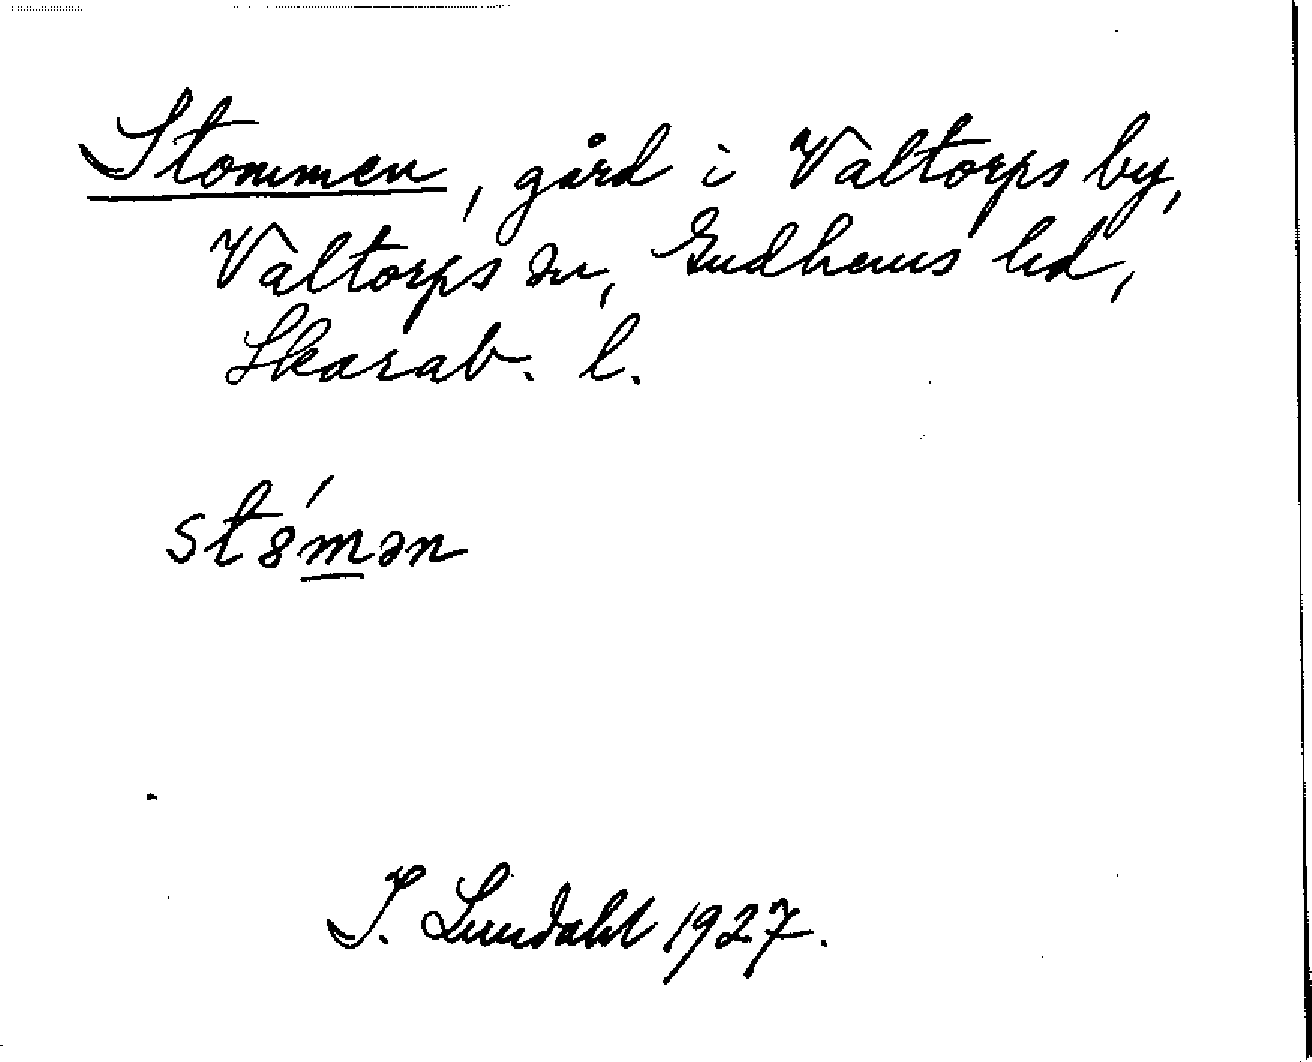 Stommen, gård i Valtorps by,
Valtorps sn, Gudhems hd,
Skarab. l.
stȣ́mən
I. Lundahl 1927.